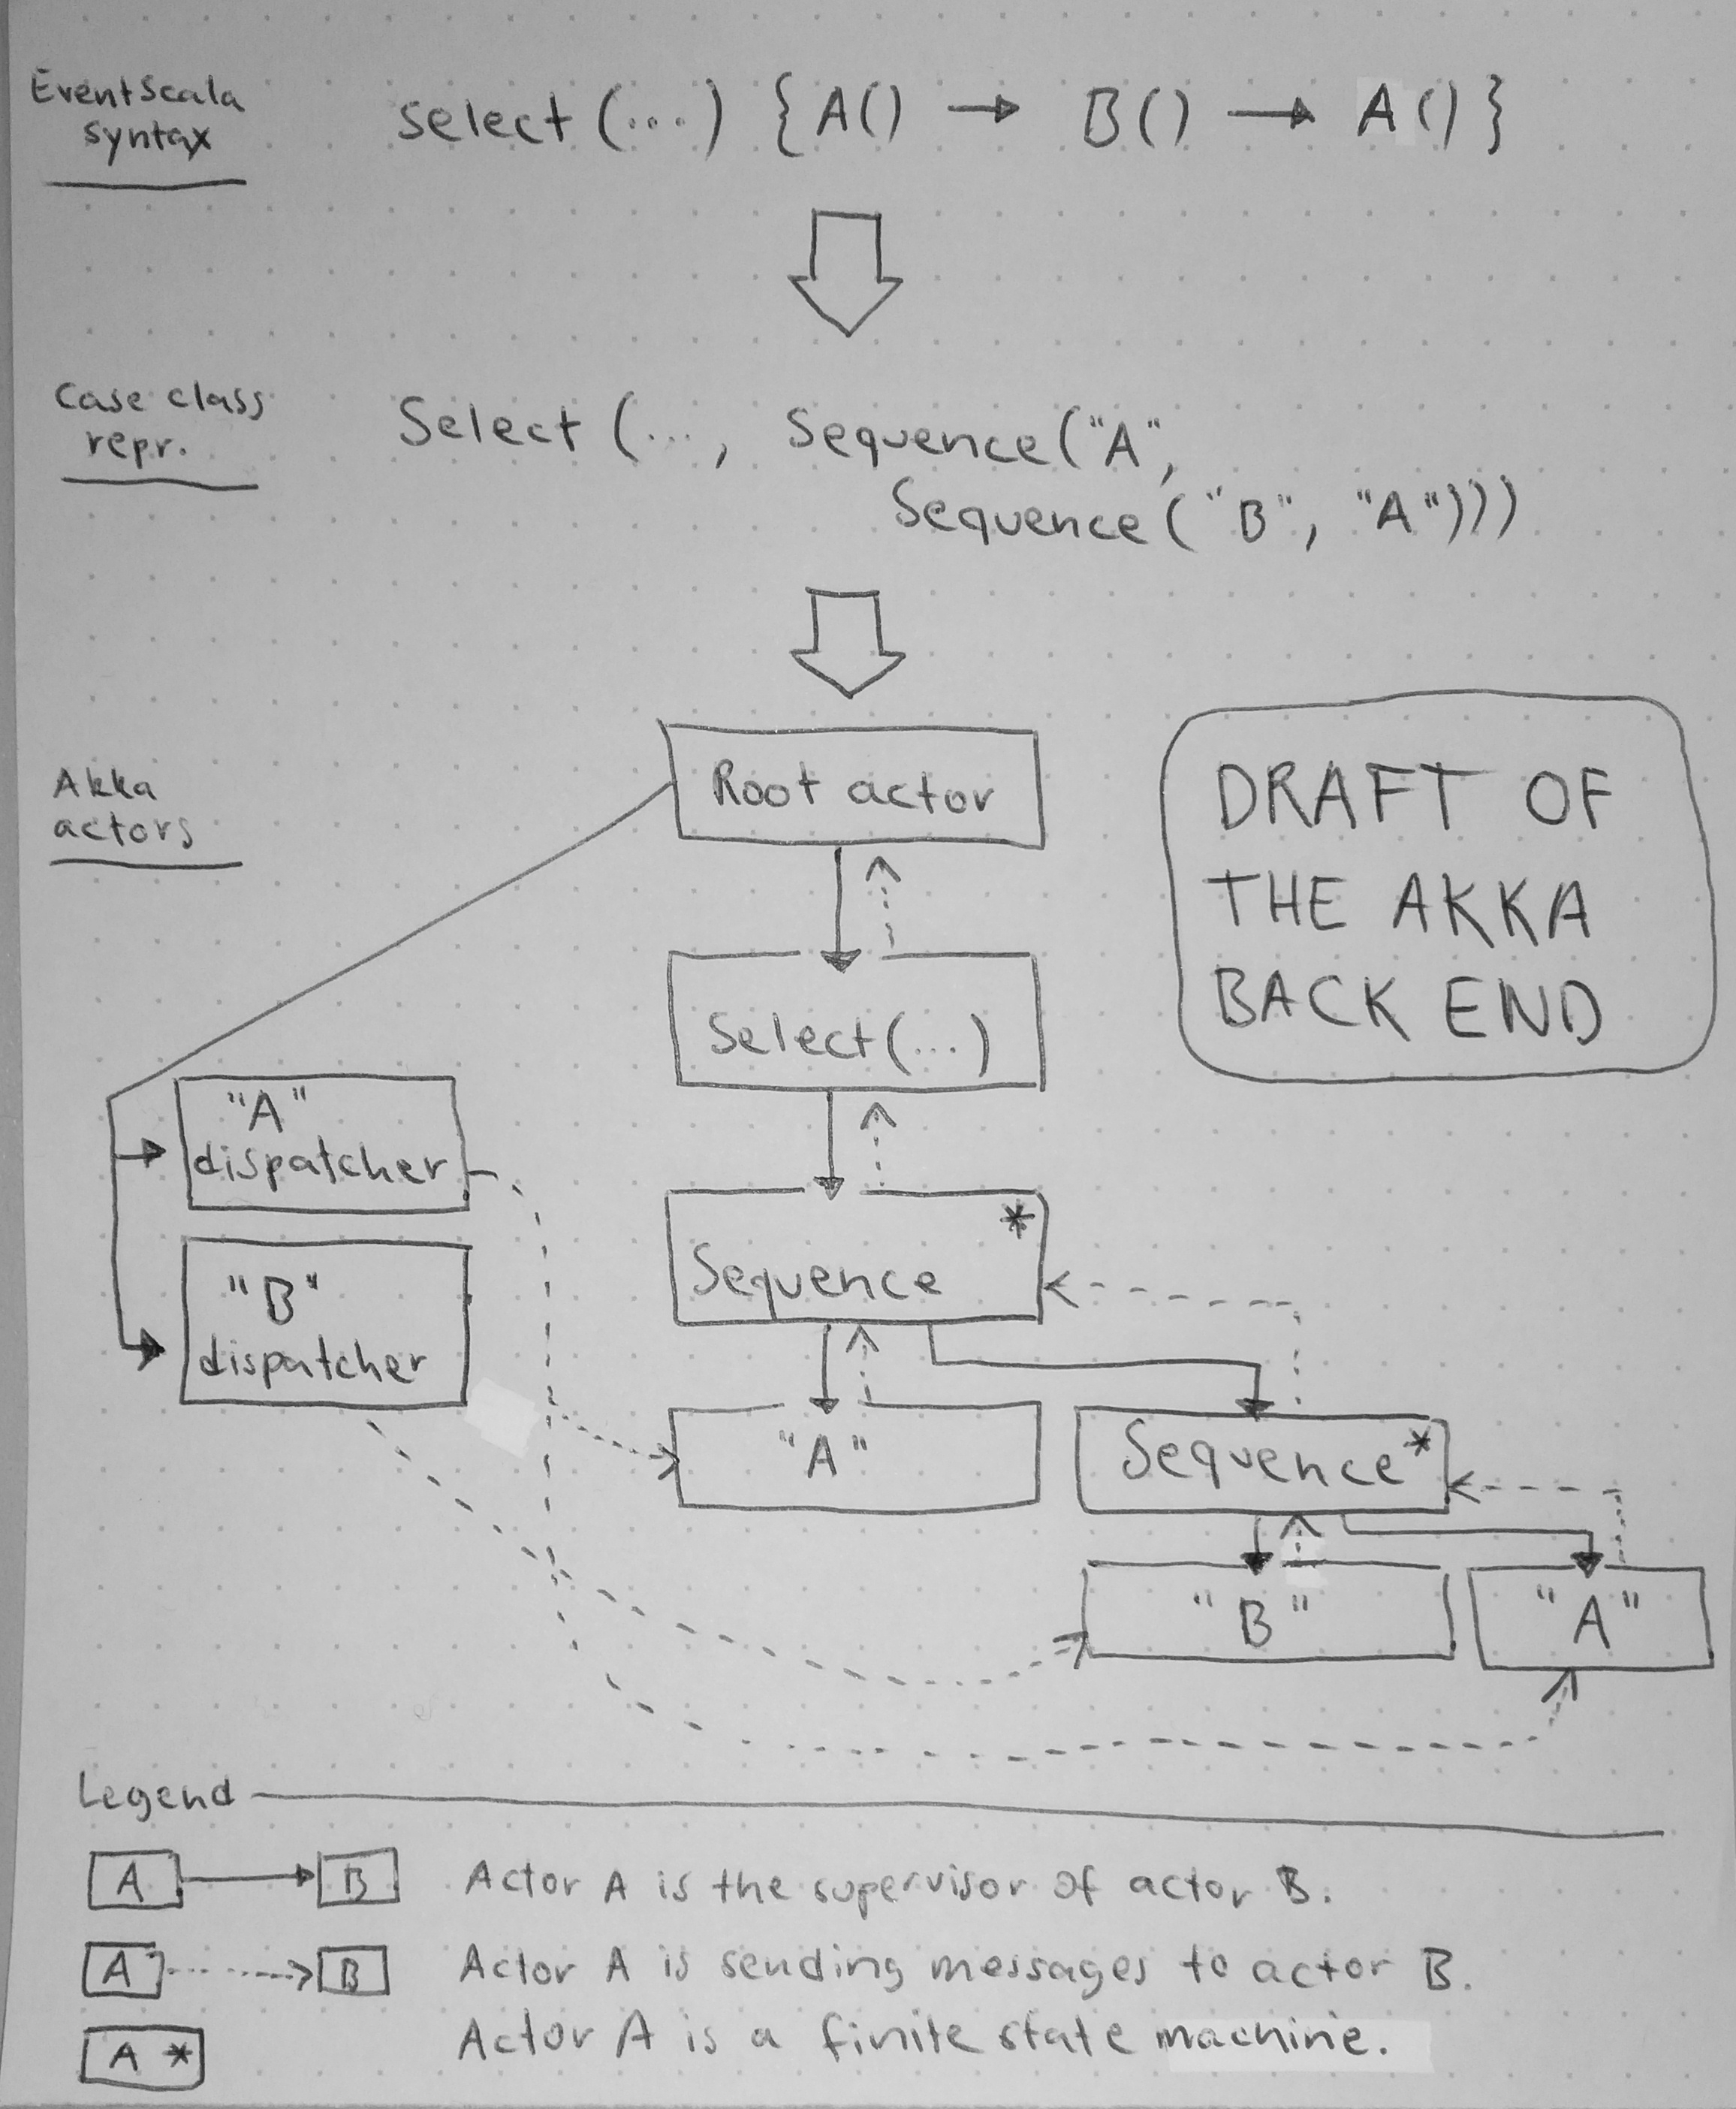 EventScala
syntax
select (...) {A() → B() → A()}
Case class
repr.
Select (..., Sequence("A",
Sequence("B", "A")))
Akka
actors
Root actor
DRAFT OF
THE AKKA
BACK END
Select(...)
"A"
dispatcher
Sequence *
"B"
dispatcher
"A"
Sequence*
"B"
"A"
Legend
A B Actor A is the supervisor of actor B.
A B Actor A is sending messages to actor B.
A * Actor A is a finite state machine.